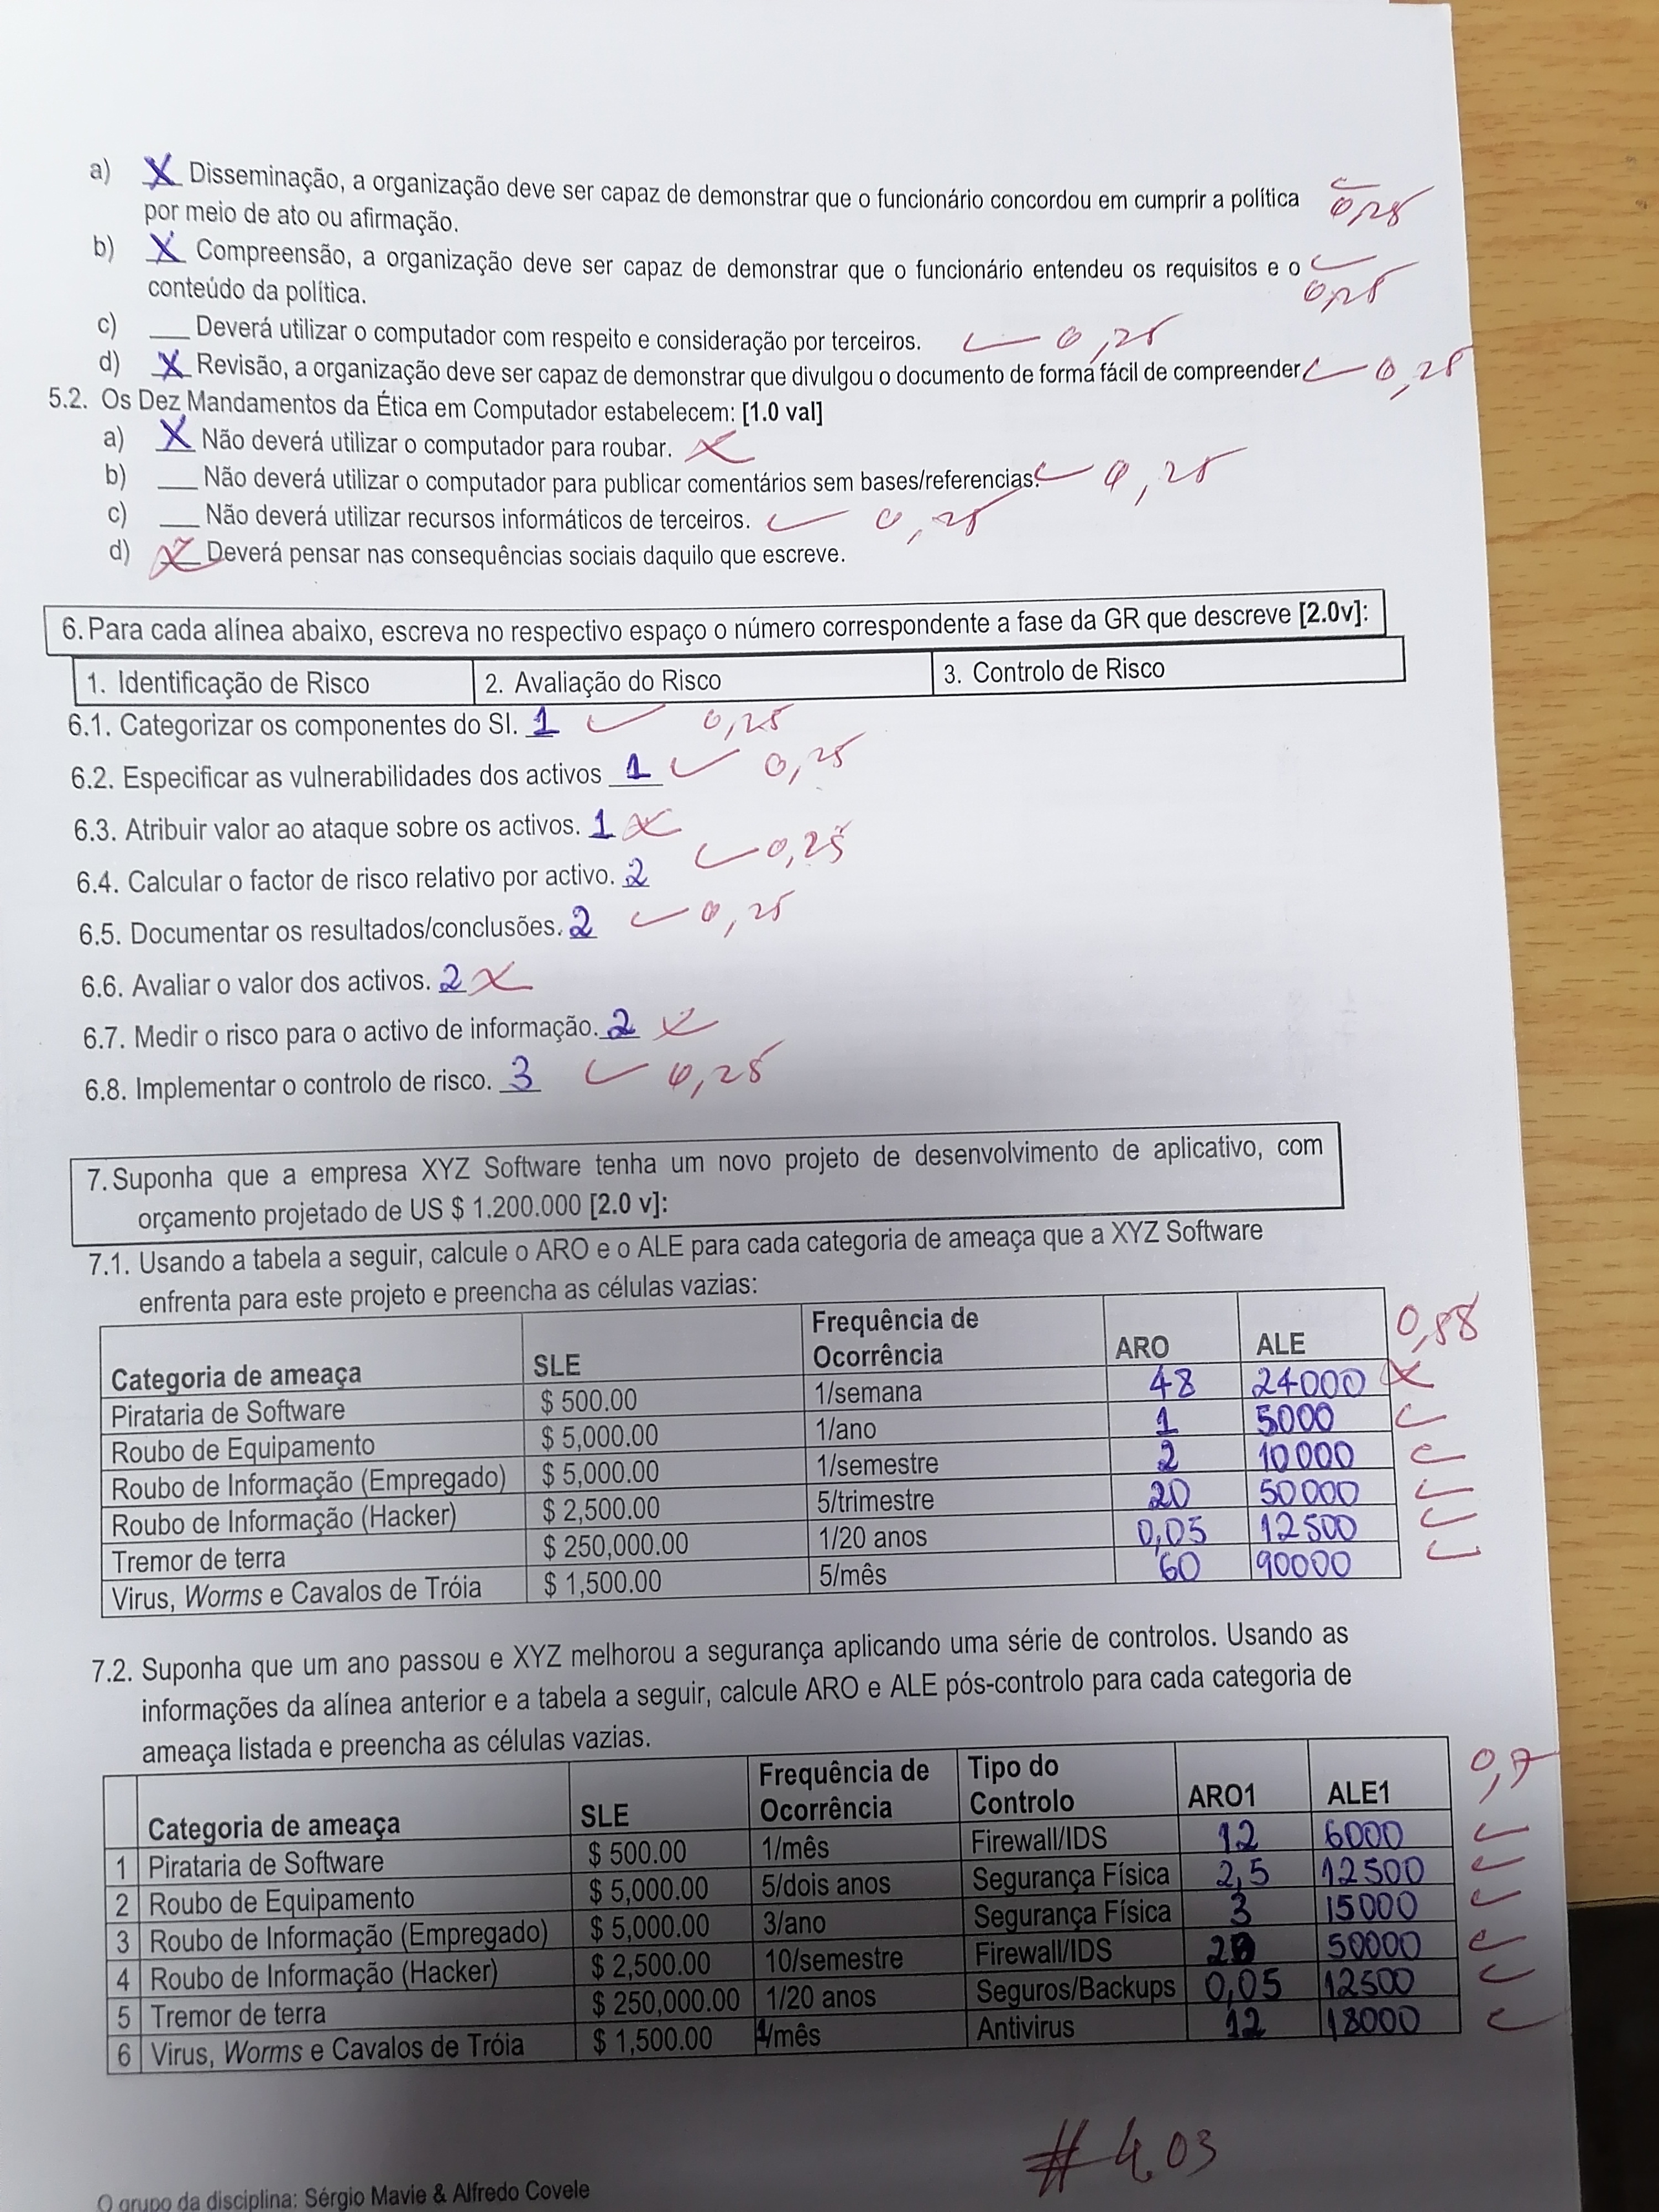 a) X Disseminação, a organização deve ser capaz de demonstrar que o funcionário concordou em cumprir a política
0,25
por meio de ato ou afirmação.
b) X Compreensão, a organização deve ser capaz de demonstrar que o funcionário entendeu os requisitos e o
0,25
conteúdo da política.
c) ___ Deverá utilizar o computador com respeito e consideração por terceiros. 0,25
d) X Revisão, a organização deve ser capaz de demonstrar que divulgou o documento de forma fácil de compreender 0,25
5.2. Os Dez Mandamentos da Ética em Computador estabelecem: [1.0 val]
a) X Não deverá utilizar o computador para roubar. X
b) ___ Não deverá utilizar o computador para publicar comentários sem bases/referencias. 0,25
c) ___ Não deverá utilizar recursos informáticos de terceiros. 0,25
d) X Deverá pensar nas consequências sociais daquilo que escreve.
6. Para cada alínea abaixo, escreva no respectivo espaço o número correspondente a fase da GR que descreve [2.0v]:
1. Identificação de Risco 2. Avaliação do Risco 3. Controlo de Risco
6.1. Categorizar os componentes do SI. 1 0,25
6.2. Especificar as vulnerabilidades dos activos 1 0,25
6.3. Atribuir valor ao ataque sobre os activos. 1 X
6.4. Calcular o factor de risco relativo por activo. 2 0,25
6.5. Documentar os resultados/conclusões. 2 0,25
6.6. Avaliar o valor dos activos. 2 X
6.7. Medir o risco para o activo de informação. 2 X
6.8. Implementar o controlo de risco. 3 0,25
7. Suponha que a empresa XYZ Software tenha um novo projeto de desenvolvimento de aplicativo, com
orçamento projetado de US $ 1.200.000 [2.0 v]:
7.1. Usando a tabela a seguir, calcule o ARO e o ALE para cada categoria de ameaça que a XYZ Software
enfrenta para este projeto e preencha as células vazias:
Categoria de ameaça SLE Frequência de Ocorrência ARO ALE 0,88
Pirataria de Software $ 500.00 1/semana 48 24000 X
Roubo de Equipamento $ 5,000.00 1/ano 1 5000
Roubo de Informação (Empregado) $ 5,000.00 1/semestre 2 10000
Roubo de Informação (Hacker) $ 2,500.00 5/trimestre 20 50000
Tremor de terra $ 250,000.00 1/20 anos 0,05 12500
Virus, Worms e Cavalos de Tróia $ 1,500.00 5/mês 60 90000
7.2. Suponha que um ano passou e XYZ melhorou a segurança aplicando uma série de controlos. Usando as
informações da alínea anterior e a tabela a seguir, calcule ARO e ALE pós-controlo para cada categoria de
ameaça listada e preencha as células vazias.
Categoria de ameaça SLE Frequência de Ocorrência Tipo do Controlo ARO1 ALE1 0,7
1 Pirataria de Software $ 500.00 1/mês Firewall/IDS 12 6000
2 Roubo de Equipamento $ 5,000.00 5/dois anos Segurança Física 2,5 12500
3 Roubo de Informação (Empregado) $ 5,000.00 3/ano Segurança Física 3 15000
4 Roubo de Informação (Hacker) $ 2,500.00 10/semestre Firewall/IDS 20 50000
5 Tremor de terra $ 250,000.00 1/20 anos Seguros/Backups 0,05 12500
6 Virus, Worms e Cavalos de Tróia $ 1,500.00 1/mês Antivirus 12 18000
# 4,03
O grupo da disciplina: Sérgio Mavie & Alfredo Covele